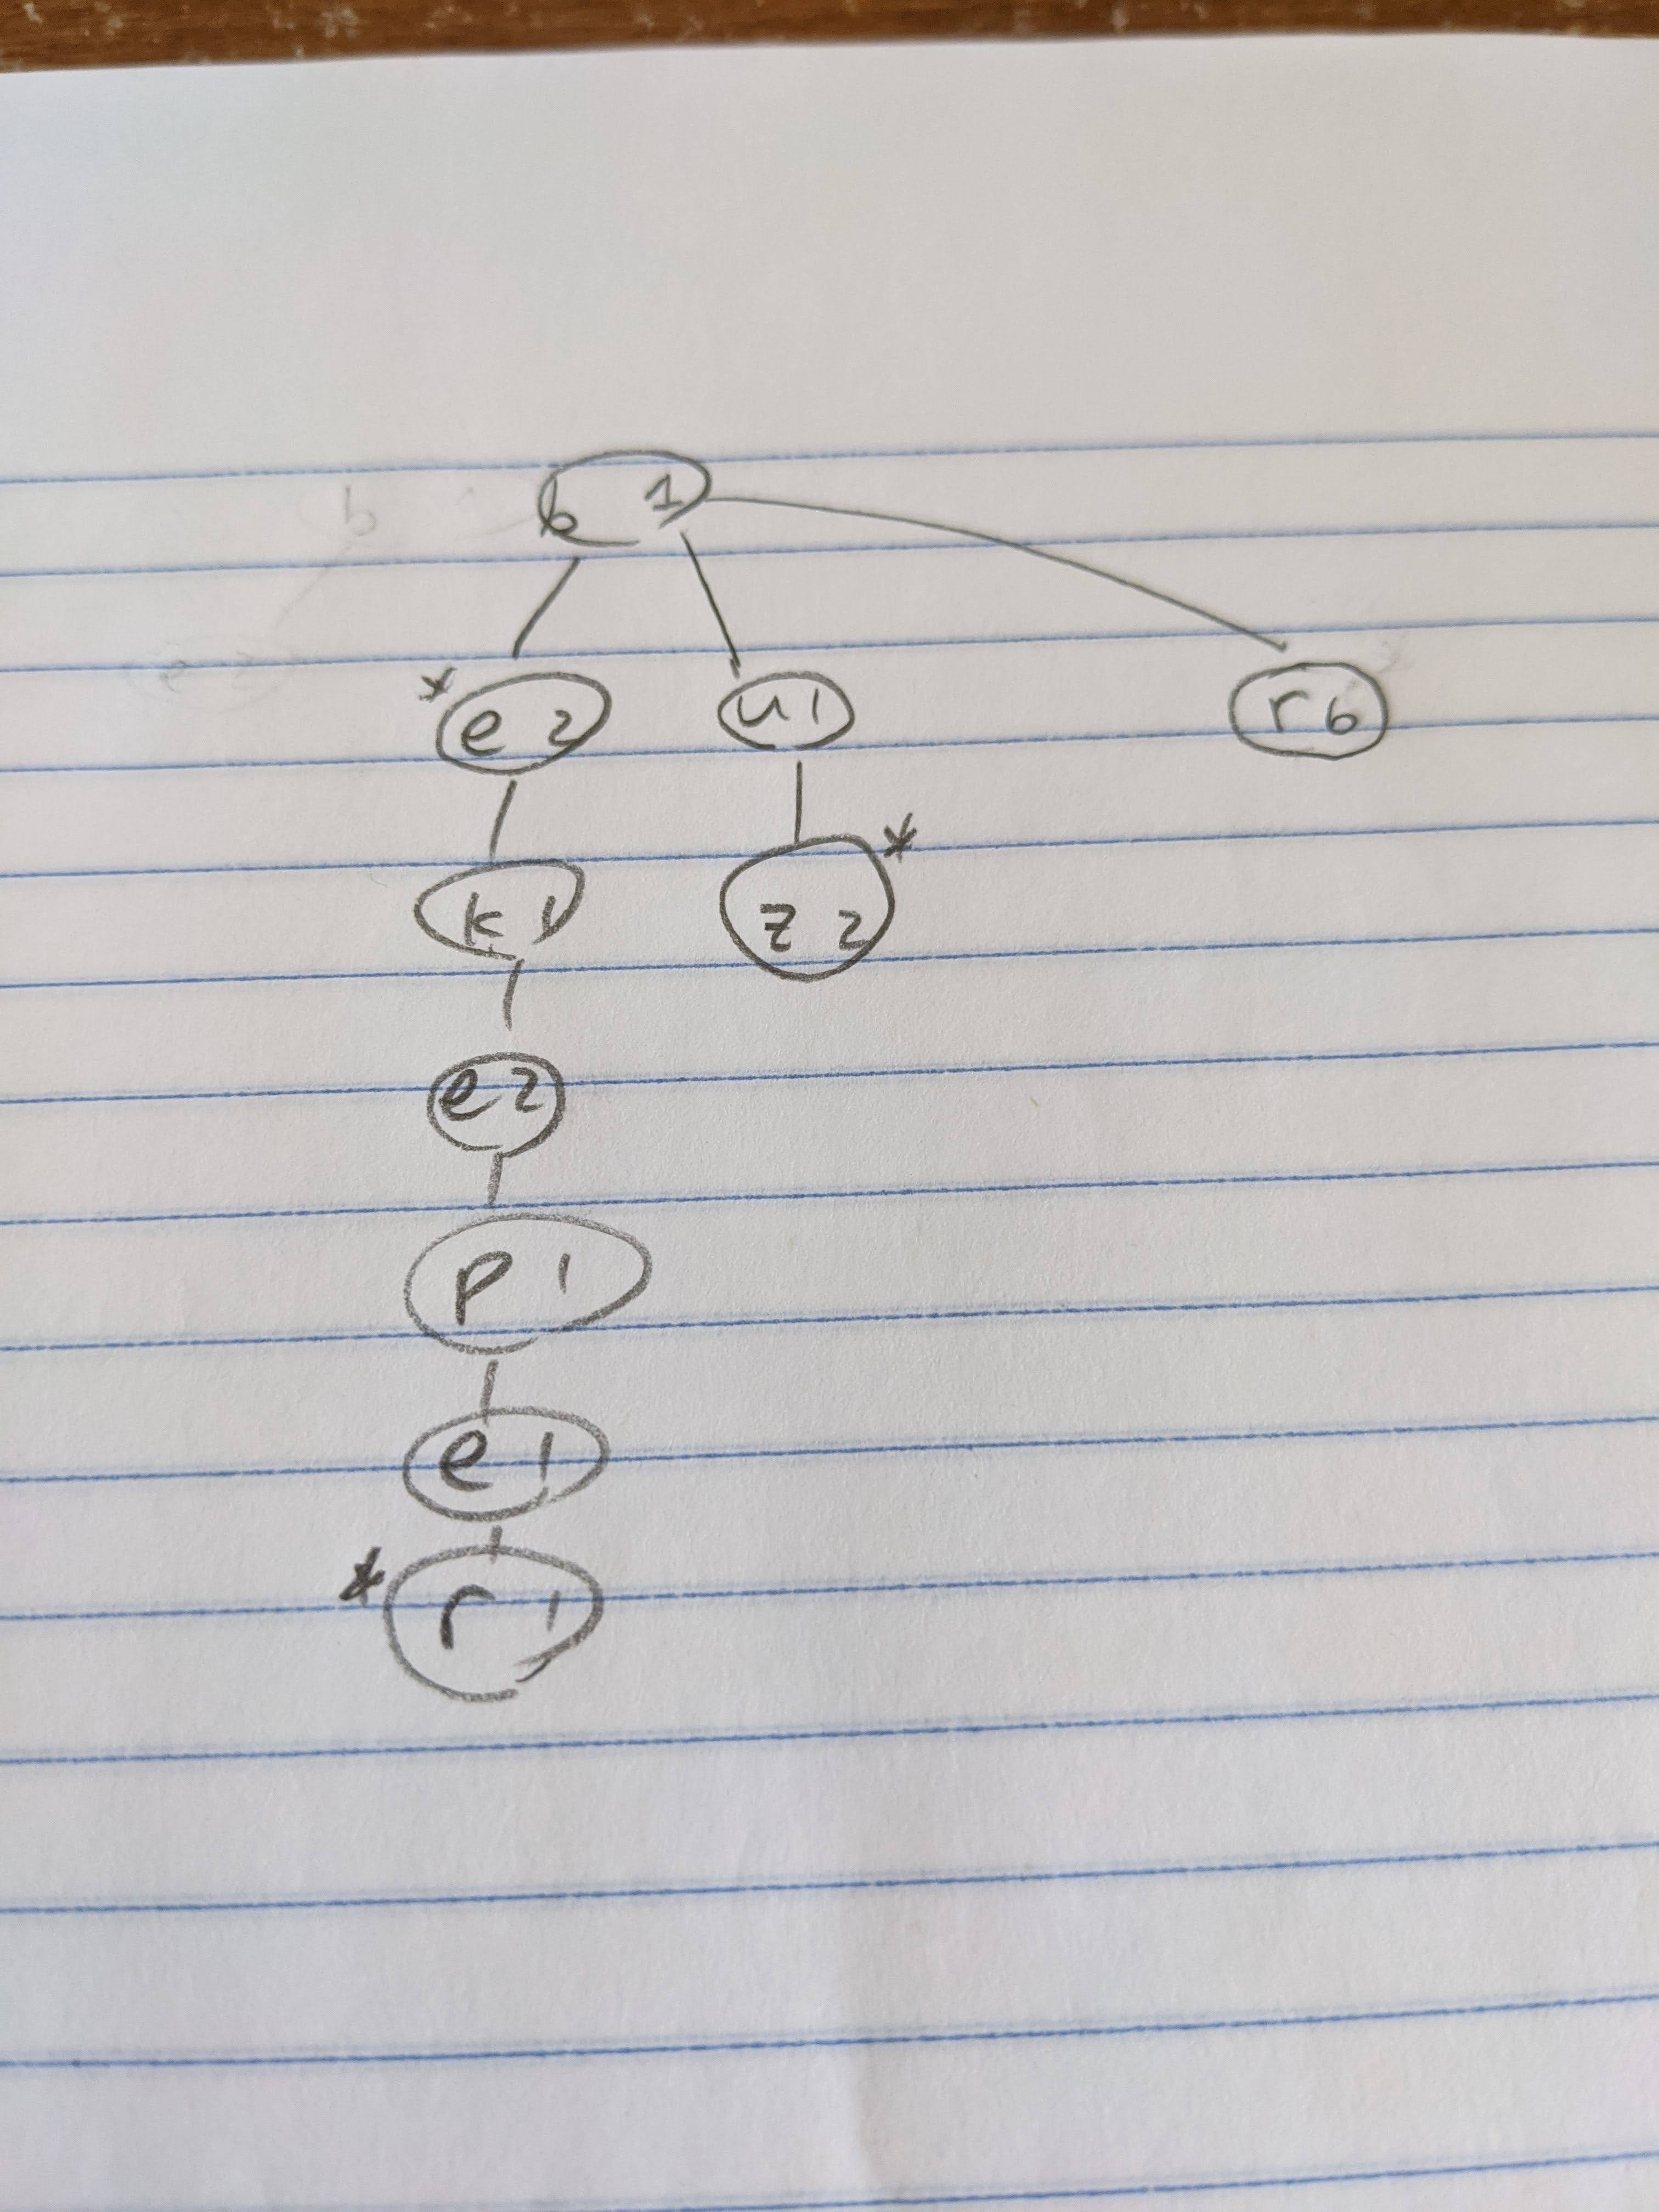 b 1
* e 2 u 1 r 6
k 1 z 2 *
e 2
p 1
e 1
* r 1